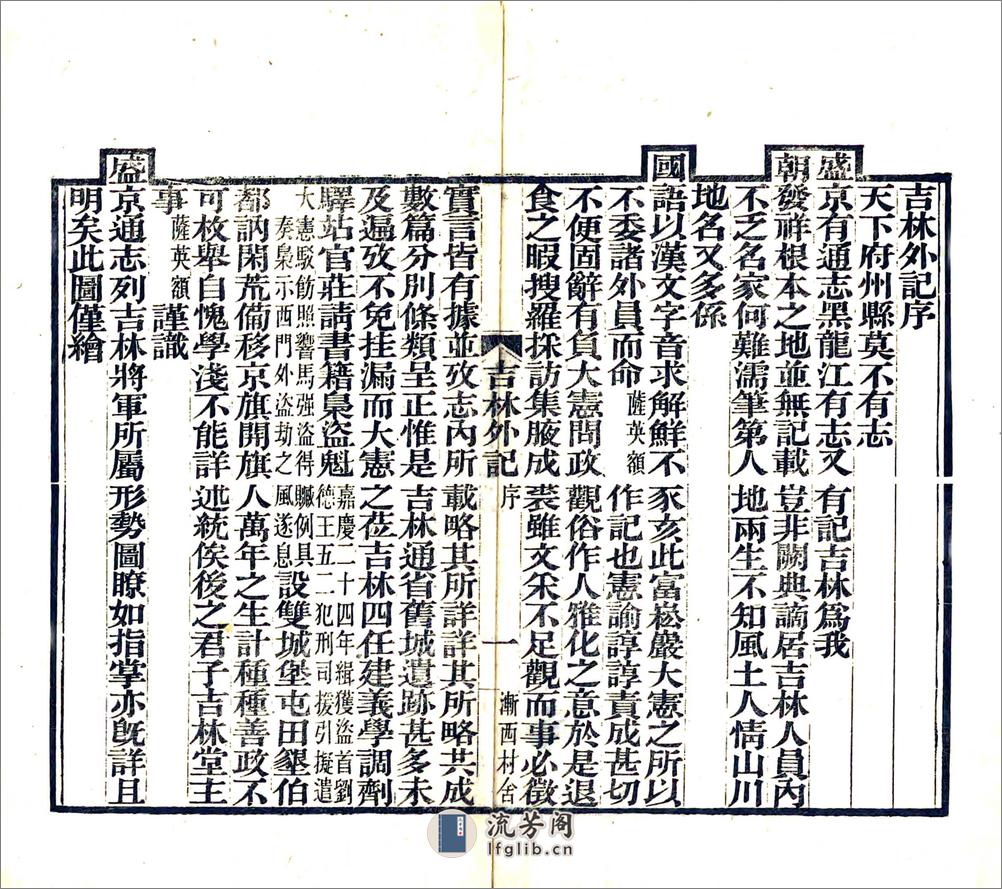 吉林外記序
天下府州縣莫不有志
盛京有通志黑龍江有志又有記吉林為我
朝發祥根本之地並無記載豈非闕典謫居吉林人員內
不乏名家何難濡筆第人地兩生不知風土人情山川
地名又多係
國語以漢文字音求解鮮不豕亥此富崧巖大憲之所以
不委諸外員而命薩英額作記也憲諭諄諄責成甚切
不便固辭有負大憲問政觀俗作人雅化之意於是退
食之暇搜羅採訪集腋成裘雖文采不足觀而事必徵
吉林外記 序 一 漸西村舍
實言皆有據並攷志內所載略其所詳詳其所略共成
數篇分別條類呈正惟是吉林通省舊城遺跡甚多未
及遍攷不免挂漏而大憲之莅吉林四任建義學調劑
驛站官莊請書籍梟盜魁嘉慶二十四年緝獲盜首劉
德王五二犯刑司援引擬遣
大憲駁飭照響馬強盜得贓例具
奏梟示西門外盜劫之風遂息設雙城堡屯田墾伯
都訥閑荒備移京旗開旗人萬年之生計種種善政不
可枚舉自愧學淺不能詳述統俟後之君子吉林堂主
事薩英額謹識
盛京通志列吉林將軍所屬形勢圖瞭如指掌亦既詳且
明矣此圖僅繪
流芳阁
lfglib.cn